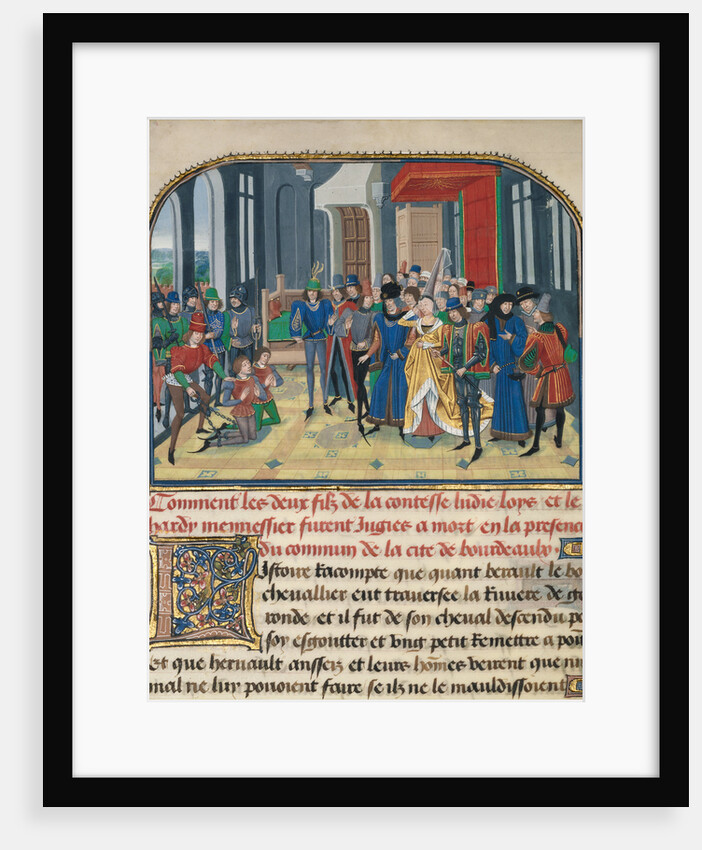 Comment les deux filz de la contesse ludie loys et le
hardy mennessier furent Jugies a mort en la presenc
du commun de la cite de bourdeaulx
Istoire Racompte que quant berault le bo
chevallier eut traversee la Riviere de ge
ronde et il fut de son cheval descendu po
soy esgoutter et ung petit Remettre a poin
et que hernault ansseiz et leurs hom̃es veirent que nu
mal ne luy pouoient faire se ilz ne le mauldissoient